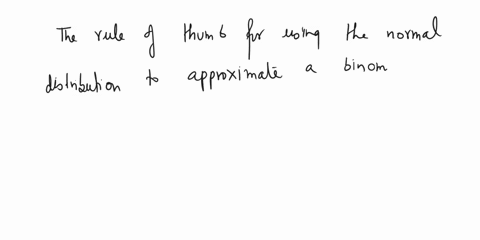 The rule of thumb for using the normal
distribution to approximate a binom